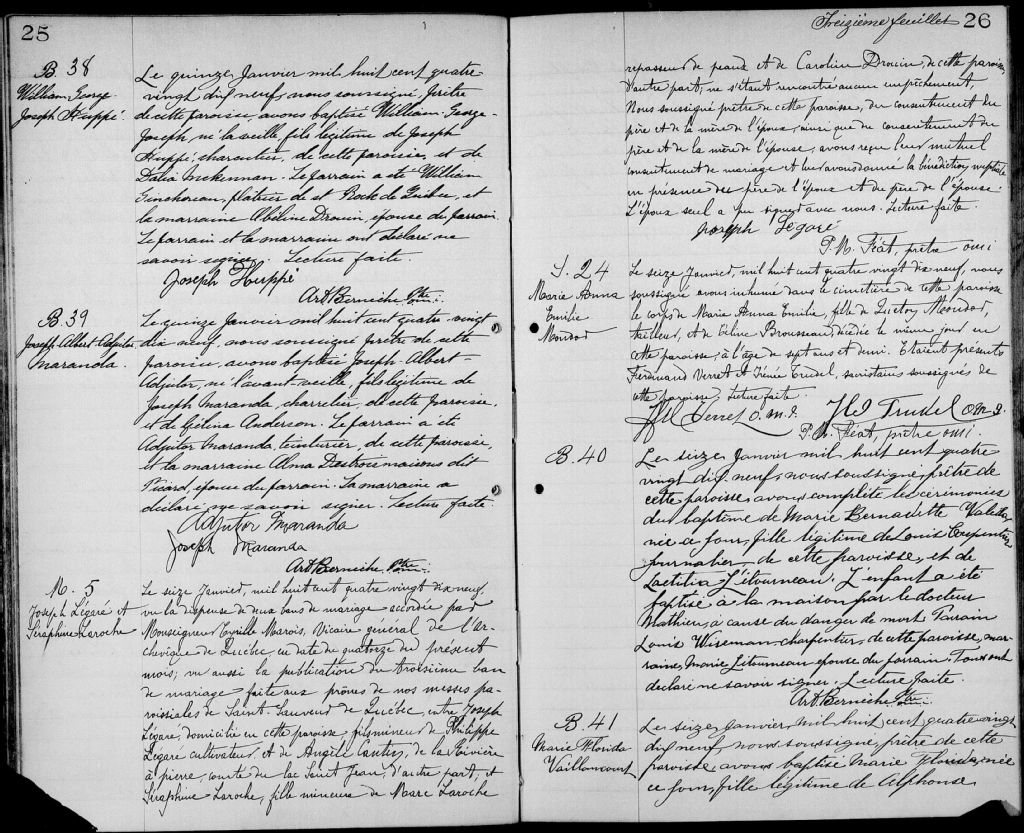 25
B. 38
William George
Joseph Huppé.
Le quinze Janvier mil huit cent quatre
vingt dix neuf, nous soussigné, prêtre
de cette paroisse, avons baptisé William George-
Joseph, né la veille, fils légitime de Joseph
Huppé, charretier, de cette paroisse, et de
Dalia McKennan. Le parrain a été William
plâtrier de St Roch de Québec, et
la marraine Albéline Drouin, épouse du parrain.
Le parrain et la marraine ont déclaré ne
savoir signer. Lecture faite.
Joseph Huppé
Art. Bernèche Ptre
B. 39
Joseph Albert Adjutor
Maranda.
Le quinze Janvier mil huit cent quatre-vingt
dix neuf, nous soussigné prêtre de cette
paroisse, avons baptisé Joseph-Albert-
Adjutor, né l'avant-veille, fils légitime de
Joseph Maranda, charretier, de cette paroisse,
et de Anderson. Le parrain a été
Adjutor Maranda, teinturier, de cette paroisse,
et la marraine Alma Destroismaisons dit
Picard, épouse du parrain. La marraine a
déclaré ne savoir signer. Lecture faite.
Adjutor Maranda
Joseph Maranda
Art. Bernèche Ptre
M. 5
Joseph Légaré et
Séraphine Laroche
Le seize Janvier, mil huit cent quatre vingt dix neuf,
vu la dispense de deux bans de mariage accordée par
Monseigneur Cyrille Marois, Vicaire général de l'ar-
chevêque de Québec, en date du quatorze du présent
mois; vu aussi la publication du troisième ban
de mariage faite aux prônes de nos messes pa-
roissiales de Saint Sauveur de Québec, entre Joseph
Légaré, domicilié en cette paroisse, fils mineur de Philippe
Légaré cultivateur, et de Angèle de la Rivière
à pierre, comté de la Saint Jean, d'autre part, et
Séraphine Laroche, fille mineure de Marc Laroche
Treizième feuillet 26
repasseur de peaux et de Caroline Drouin, de cette paroisse,
d'autre part; ne s'étant rencontré aucun empêchement,
Nous soussigné prêtre de cette paroisse, du consentement du
père et de la mère de l'époux, ainsi que du consentement du
père et de la mère de l'épouse, avons reçu leur mutuel
consentement de mariage et leur avons donné la bénédiction nuptiale
en présence du père de l'époux et du père de l'épouse.
L'époux seul a pu signer avec nous. Lecture faite.
Joseph Légaré
P. M. Féat, prêtre omi
S. 24
Marie Anna
Emilie
Mondor
Le seize Janvier, mil huit cent quatre vingt dix neuf, nous
soussigné avons inhumé dans le cimetière de cette paroisse
le corps de Marie Anna Emilie, fille de Mondor,
tailleur, et de Céline Brousseau, décédée le même jour en
cette paroisse, à l'âge de sept ans et demi. Etaient présents
Ferdinand Verret et Irénée Trudel, sacristains soussignés de
cette paroisse. Lecture faite.
Verret o.m.i. Trudel o.m.i.
P. M. Féat, prêtre omi.
B. 40
Le seize Janvier mil huit cent quatre
vingt dix neuf, nous soussigné, prêtre de
cette paroisse, avons complété les cérémonies
du baptême de Marie Bernadette Valéda,
née ce jour, fille légitime de Louis Carpentier
journalier, de cette paroisse, et de
Laetitia Létourneau. L'enfant a été
baptisé à la maison par le docteur
Mathieu, à cause du danger de mort. Parrain
Louis Wiseman charpentier, de cette paroisse, mar-
raine, Marie Létourneau épouse du parrain. Tous ont
déclaré ne savoir signer. Lecture faite.
Art. Bernèche Ptre
B. 41
Marie Florida
Vaillancourt
Le seize, Janvier mil huit cent quatre vingt
dix neuf, nous soussigné, prêtre de cette
paroisse, avons baptisé Marie Florida, née
ce jour, fille légitime de Alphonse